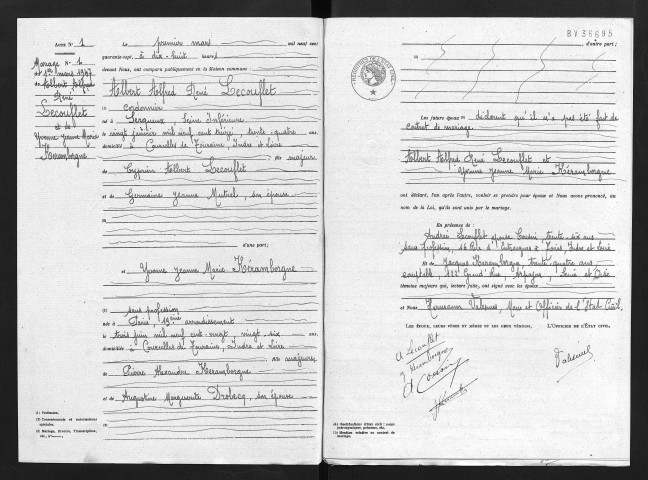 Acte N° 1
Mariage N° 1
du 1er mars 1947
de Albert Alfred
René
Lecouflet
et de
Yvonne Jeanne Marie
Keramborgne
Le premier mars mil neuf cent
quarante-sept, à dix-huit heures
devant Nous, ont comparu publiquement en la Maison commune :
Albert Alfred René Lecouflet
(1) cordonnier
né à Serqueux, Seine Inférieure
le vingt janvier mil neuf cent treize, trente-quatre ans
domicilié à Courcelles de Touraine, Indre et Loire
fils majeur
de Cyprien Albert Lecouflet
et de Germaine Jeanne Mutuel, son épouse
d'une part;
et Yvonne Jeanne Marie Keramborgne
(1) sans profession
née à Paris 19ème arrondissement
le trois juin mil neuf cent vingt, vingt-six ans
domiciliée à Courcelles de Touraine, Indre et Loire
fille majeure
de Pierre Alexandre Keramborgne
et de Augustine Marguerite Drolecq, son épouse
(1) Profession.
(2) Consentements et autorisations spéciales.
(3) Mariage, Divorce, Transcription, etc.
BV36695
d'autre part;
Les futurs époux déclarent qu'il n'a pas été fait de
contrat de mariage.
Albert Alfred René Lecouflet et
Yvonne Jeanne Marie Kéramborgne
ont déclaré, l'un après l'autre, vouloir se prendre pour époux et Nous avons prononcé, au
nom de la Loi, qu'ils sont unis par le mariage.
En présence de :
Andrée Lecouflet épouse Cousin, trente-six ans
sans profession, 16 Rue d'Entraigues à Tours, Indre et Loire
Et de Jacques Keramborgne, trente-quatre ans
comptable 122 Grand'Rue, Arpajon, Seine et Oise
témoins majeurs qui, lecture faite, ont signé avec les époux
et Nous Hermann Valepus, Maire et Officier de l'État Civil.
Les époux, leurs pères et mères et les deux témoins,
L'Officier de l'État Civil,
A Lecouflet
Y Keramborgne